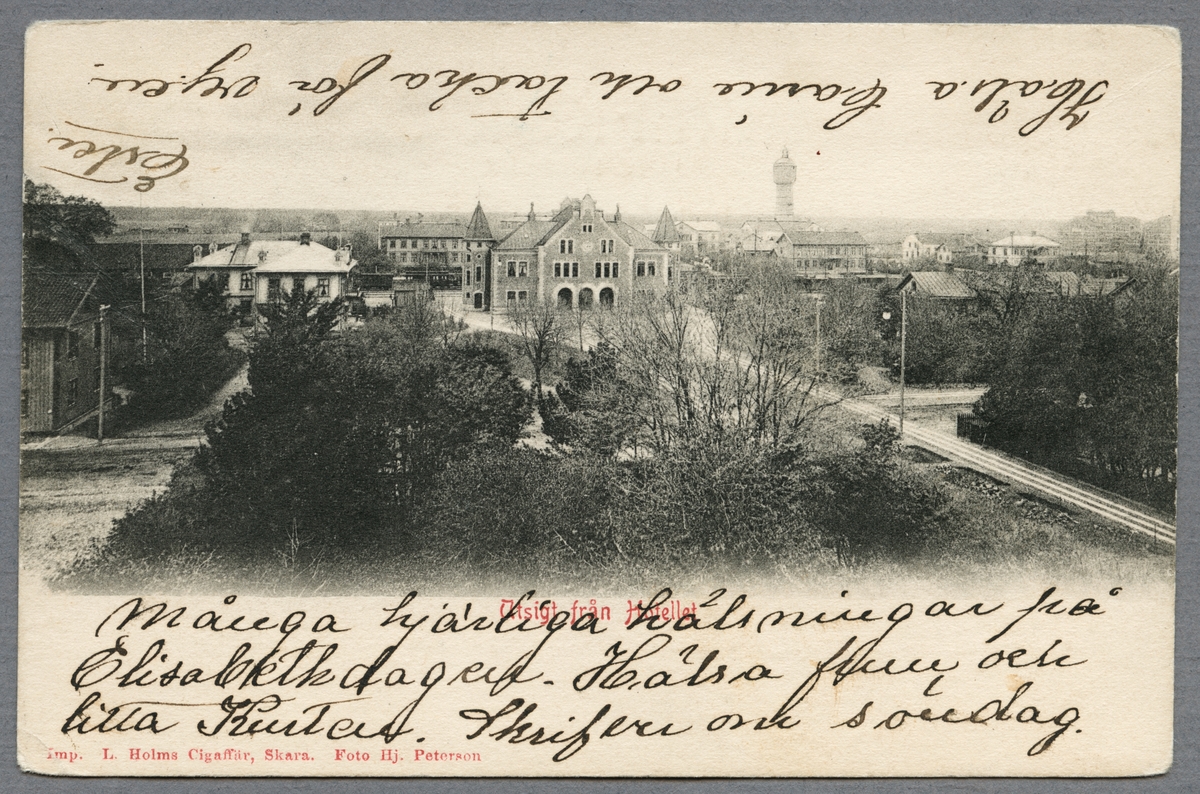 Hälsa Carin och tacka för vyen.
Ester.
Utsigt från Hotellet
Många hjärliga hälsningar på
Elisabethdagen. Hälsa finn och
litta Kurtan. Skrifver om söndag.
Imp. L. Holms Cigaffär, Skara. Foto Hj. Peterson